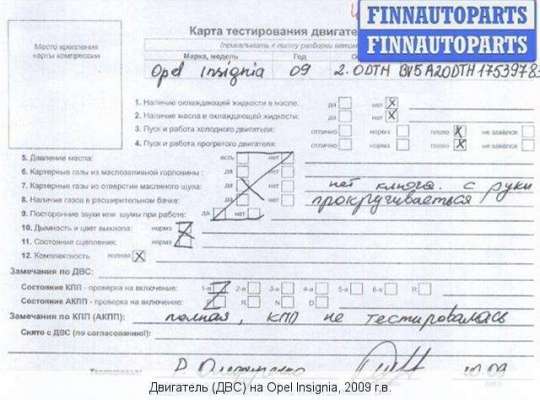 FINNAUTOPARTS
FINNAUTOPARTS
Место крепления
карты компрессии
Карта тестирования двигате
(прикалывать к листу разборки
Марка, модель Год
Opel Insignia 09 2.0DTH
1. Наличие охлаждающей жидкости в масле. да нет X
2. Наличие масла в охлаждающей жидкости: да нет X
3. Пуск и работа холодного двигателя: отлично норма плохо X не завёлся
4. Пуск и работа прогретого двигателя: отлично норма плохо X не завёлся
5. Давление масла: есть нет
6. Картерные газы из маслозаливной горловины: да нет
7. Картерные газы из отверстия масляного щупа: да нет нет ключа. с руки
8. Наличие газов в расширительном бачке: да нет прокручивается
9. Посторонние звуки или шумы при работе: да нет
10. Дымность и цвет выхлопа: норма
11. Состояние сцепления: норма X
12. Комплектность полная X
Замечания по ДВС:
Состояние КПП - проверка на включение: 1-я 2-я 3-я 4-я 5-я 6-я R:
Состояние АКПП - проверка на включение: R N D
Замечания по КПП (АКПП): полная, КПП не тестировалась
Снято с ДВС (по согласованию!):
Двигатель (ДВС) на Opel Insignia, 2009 г.в.